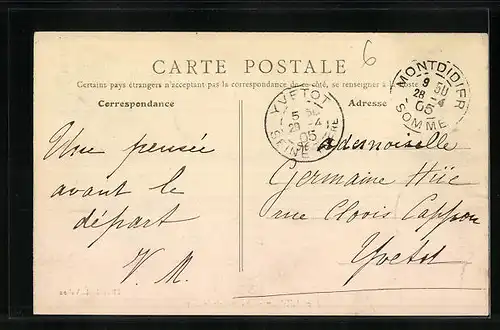 6
CARTE POSTALE
Certains pays étrangers n'acceptant pas la correspondance de ce côté, se renseigner à la Poste
Correspondance
Adresse
MONTDIDIER
9 50
28 -4
05
SOMME
YVETOT
5
28 -4
05
SEINE INFRE
Une pensée
avant le
départ
V. M.
Mademoiselle
Germaine Hüe
rue Clovis Cappon
Yvetot